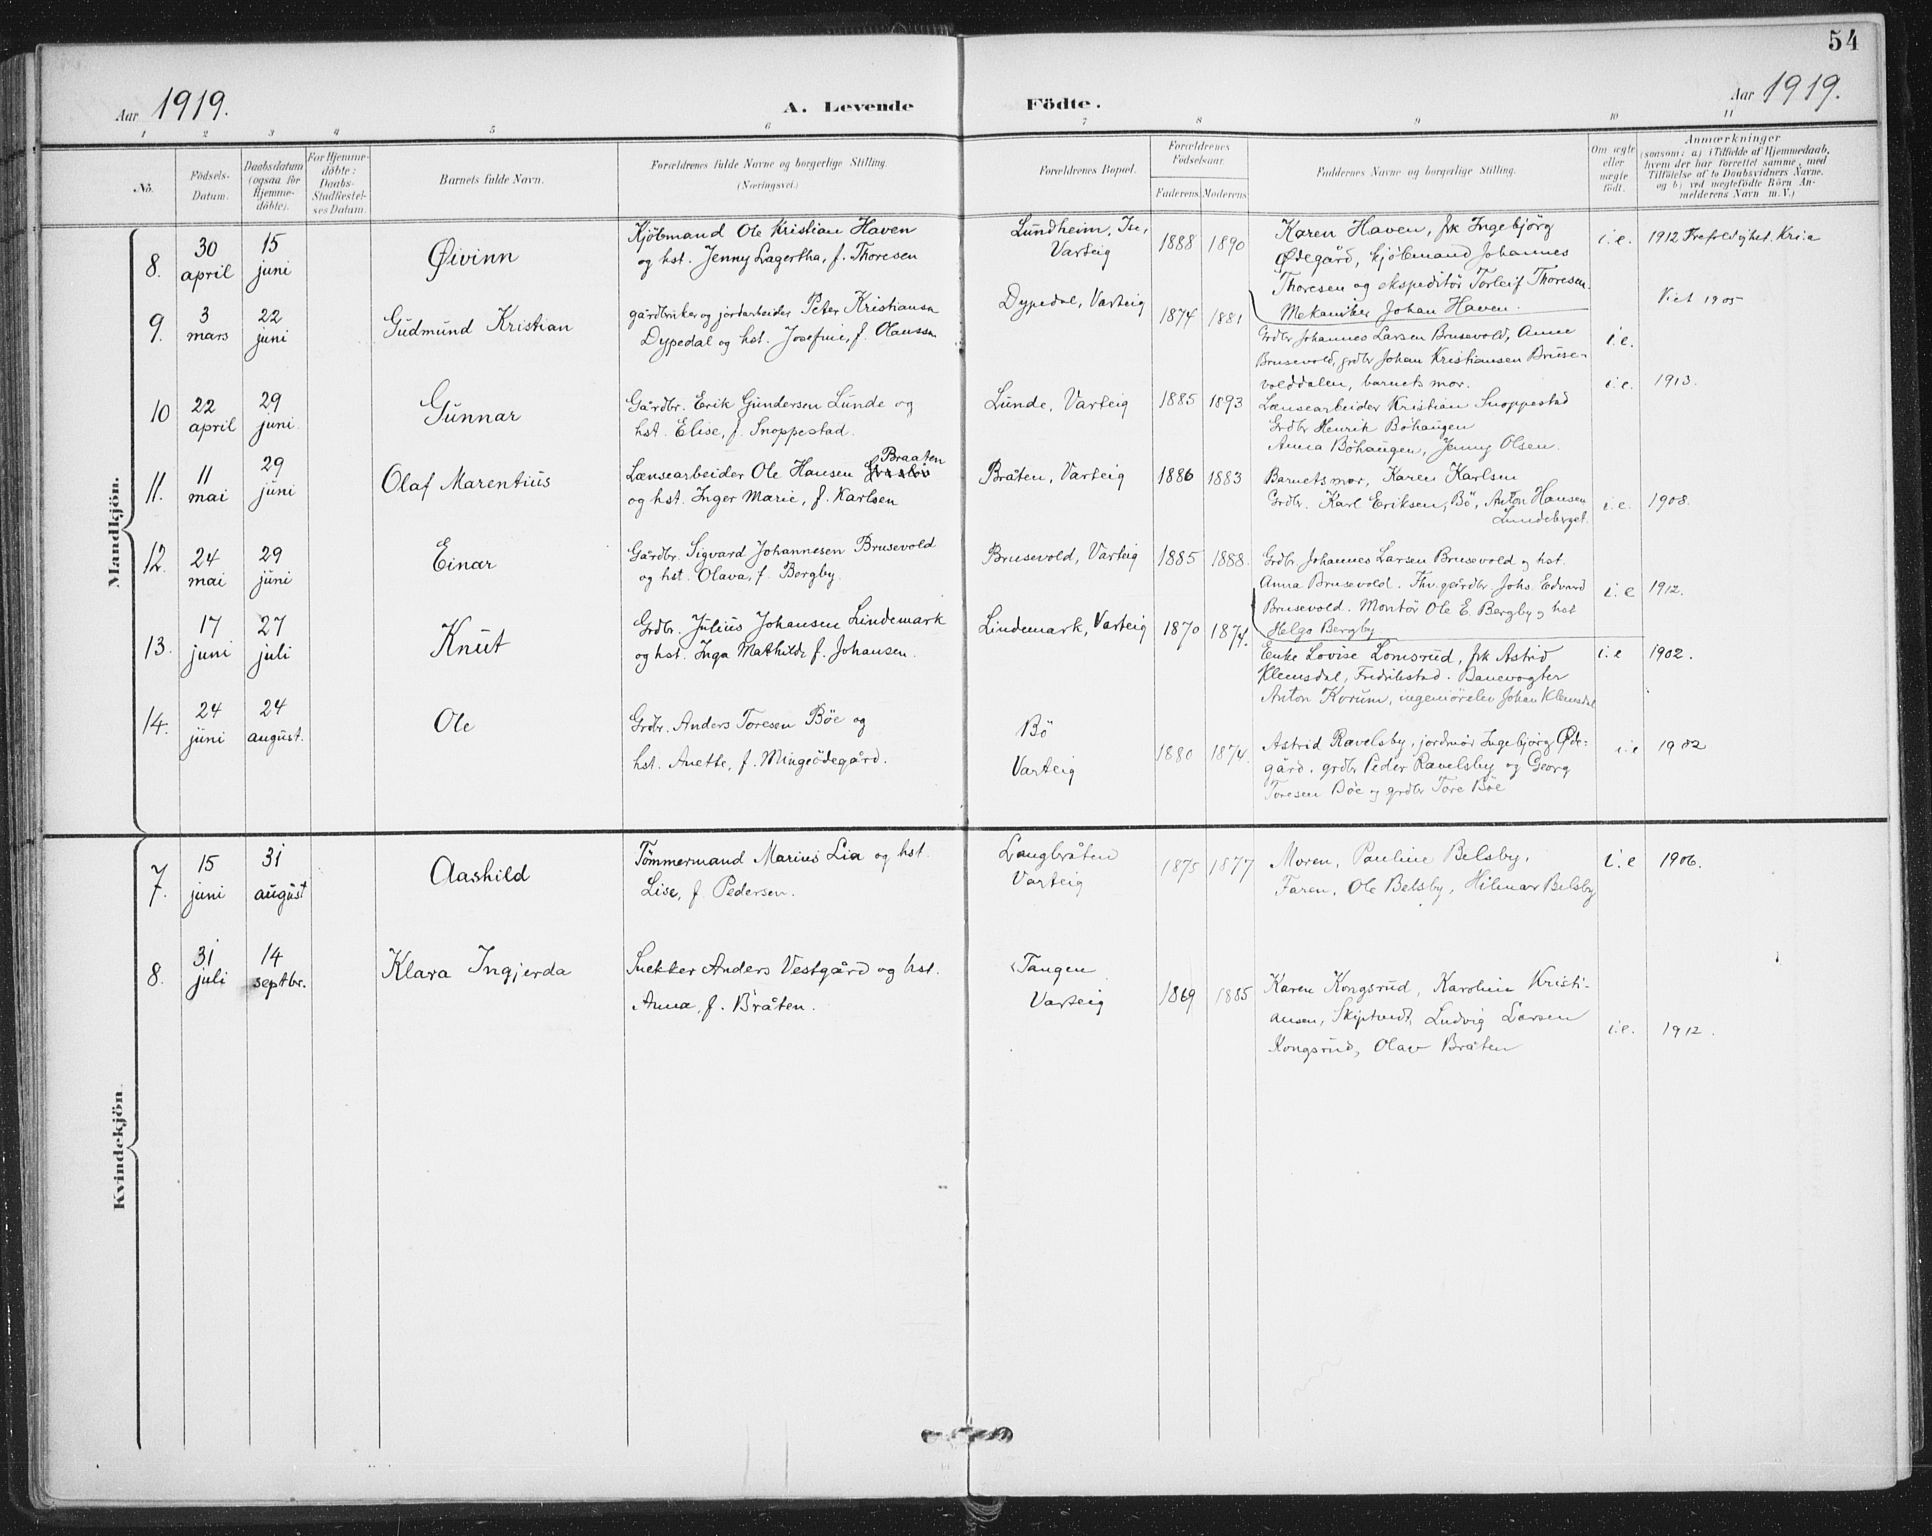 54
Aar 1919.
A. Levende Födte.
Aar 1919.
1 2 3 4 5 6 7 8 9 10 11
No.
Födsels-
Datum.
Daabsdatum
(ogsaa for
Hjemme-
döbte).
For Hjemme-
döbte:
Daabs-
Stadfæstel-
ses Datum.
Barnets fulde Navn.
Forældrenes fulde Navne og borgerlige Stilling.
(Næringsvei.)
Forældrenes Bopæl.
Forældrenes
Födselsaar.
Faderens Moderens
Faddernes Navne og borgerlige Stilling.
Om ægte
eller
uægte
födt.
Anmærkninger
(saasom: a) i Tilfælde af Hjemmedaab,
hvem der har forrettet samme, med
Tilföielse af to Daabsvidners Navne.
og b) ved uægtefödte Börn An-
melderens Navn m.V.)
Mandkjön.
8.
30
april
15
juni
Øivinn
Kjöbmand Ole Kristian Haven
og hst. Jenny Lagertha, f. Thoresen
Lundheim, Ise,
Varteig
1888 1890
Karen Haven, frk Ingebjörg
Ødegård, kjöbmand Johannes
Thoresen og ekspeditör Torleif Thoresen
Mekaniker Johan Haven.
i.e.
1912 Trefoldighet. Kr.ia
9.
3
mars
22
juni
Gudmund Kristian
gårdbruker og jordarbeider Peter Kristiansen
Dypedal og hst. Josefine, f. Olaussen
Dypedal, Varteig
1874 1881
Grdbr Johannes Larsen Brusevold, Anne
Brusevold, grdbr Johan Kristiansen Bruse-
volddalen, barnets mor.
i.e.
Viet 1905
10
22
april
29
juni
Gunnar
Gårdbr. Erik Gundersen Lunde og
hst. Elise, f. Snoppestad.
Lunde, Varteig
1885 1893
Lænsearbeider Kristian Snoppestad
Grdbr Henrik Böhaugen
Anna Böhaugen, Jenny Olsen.
i.e.
1913.
11.
11
mai
29
juni
Olaf Marentius
Braaten
Lænsearbeider Ole Hansen
og hst. Inger Marie, f. Karlsen
Bråten, Varteig
1886 1883
Barnets mor, Karen Karlsen
Grdbr. Karl Eriksen, Bö, Anton Hansen
Lundeberget.
i.e.
1908.
12.
24
mai
29
juni
Einar
Gårdbr. Sigvard Johannesen Brusevold
og hst. Olava, f. Bergby.
Brusevold, Varteig
1885 1888.
Grdbr Johannes Larsen Brusevold og hst.
Anna Brusevold. Fhv. gårdbr Johs. Edvard
Brusevold. Montör Ole E. Bergby og hst
Helga Bergby
i.e
1912.
13.
17
juni
27
juli
Knut
Grdbr. Julius Johansen Lindemark
og hst. Inga Mathilde f. Johansen.
Lindemark, Varteig
1870 1874.
Enke Lovise Lomsrud, frk Astrid
Klemsdal, Fredrikstad. Banevogter
Anton Korum, ingeniörelev Johan Klemsdal
i.e
1902.
14.
24
juni
24
august.
Ole
Grdbr. Anders Toresen Böe og
hst. Anette, f. Mingeödegård.
Bö
Varteig
1880 1874.
Astrid Ravelsby, jordmor Ingebjörg Øde-
gård. grdbr Peder Ravelsby og Georg
Toresen Böe og grdbr Tore Böe
i.e
Kvindekjön
7.
15
juni
31
august
Aashild
Tömmermand Marius Lia og hst.
Lise, f. Pedersen.
Langbråten
Varteig
1875 1877
Moren, Pauline Belsby,
Faren, Ole Belsby, Hilmar Belsby
i.e
1906.
8.
31
juli
14
septbr.
Klara Ingjerda
Snekker Anders Vestgård og hst.
Anna, f. Bråten.
Tangen
Varteig
1869 1885
Karen Kongsrud, Karoline Kristi-
ansen, Skiptvedt, Ludvig Larsen
Kongsrud, Olav Bråten
i.e.
1912.